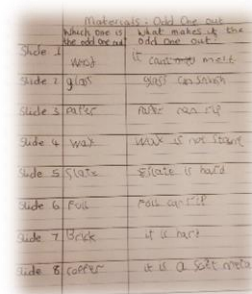 Materials: Odd One out
Which one is the odd one out?
What makes it the odd one out?
Slide 1 Wood it melt
Slide 2 glass glass can smash
Slide 3 Paper Paper can rip
Slide 4 Wax Wax is not
Slide 5 Slate Slate is hard
Slide 6 Foil Foil can rip
Slide 7 Brick it is hard
Slide 8 copper it is a soft metal